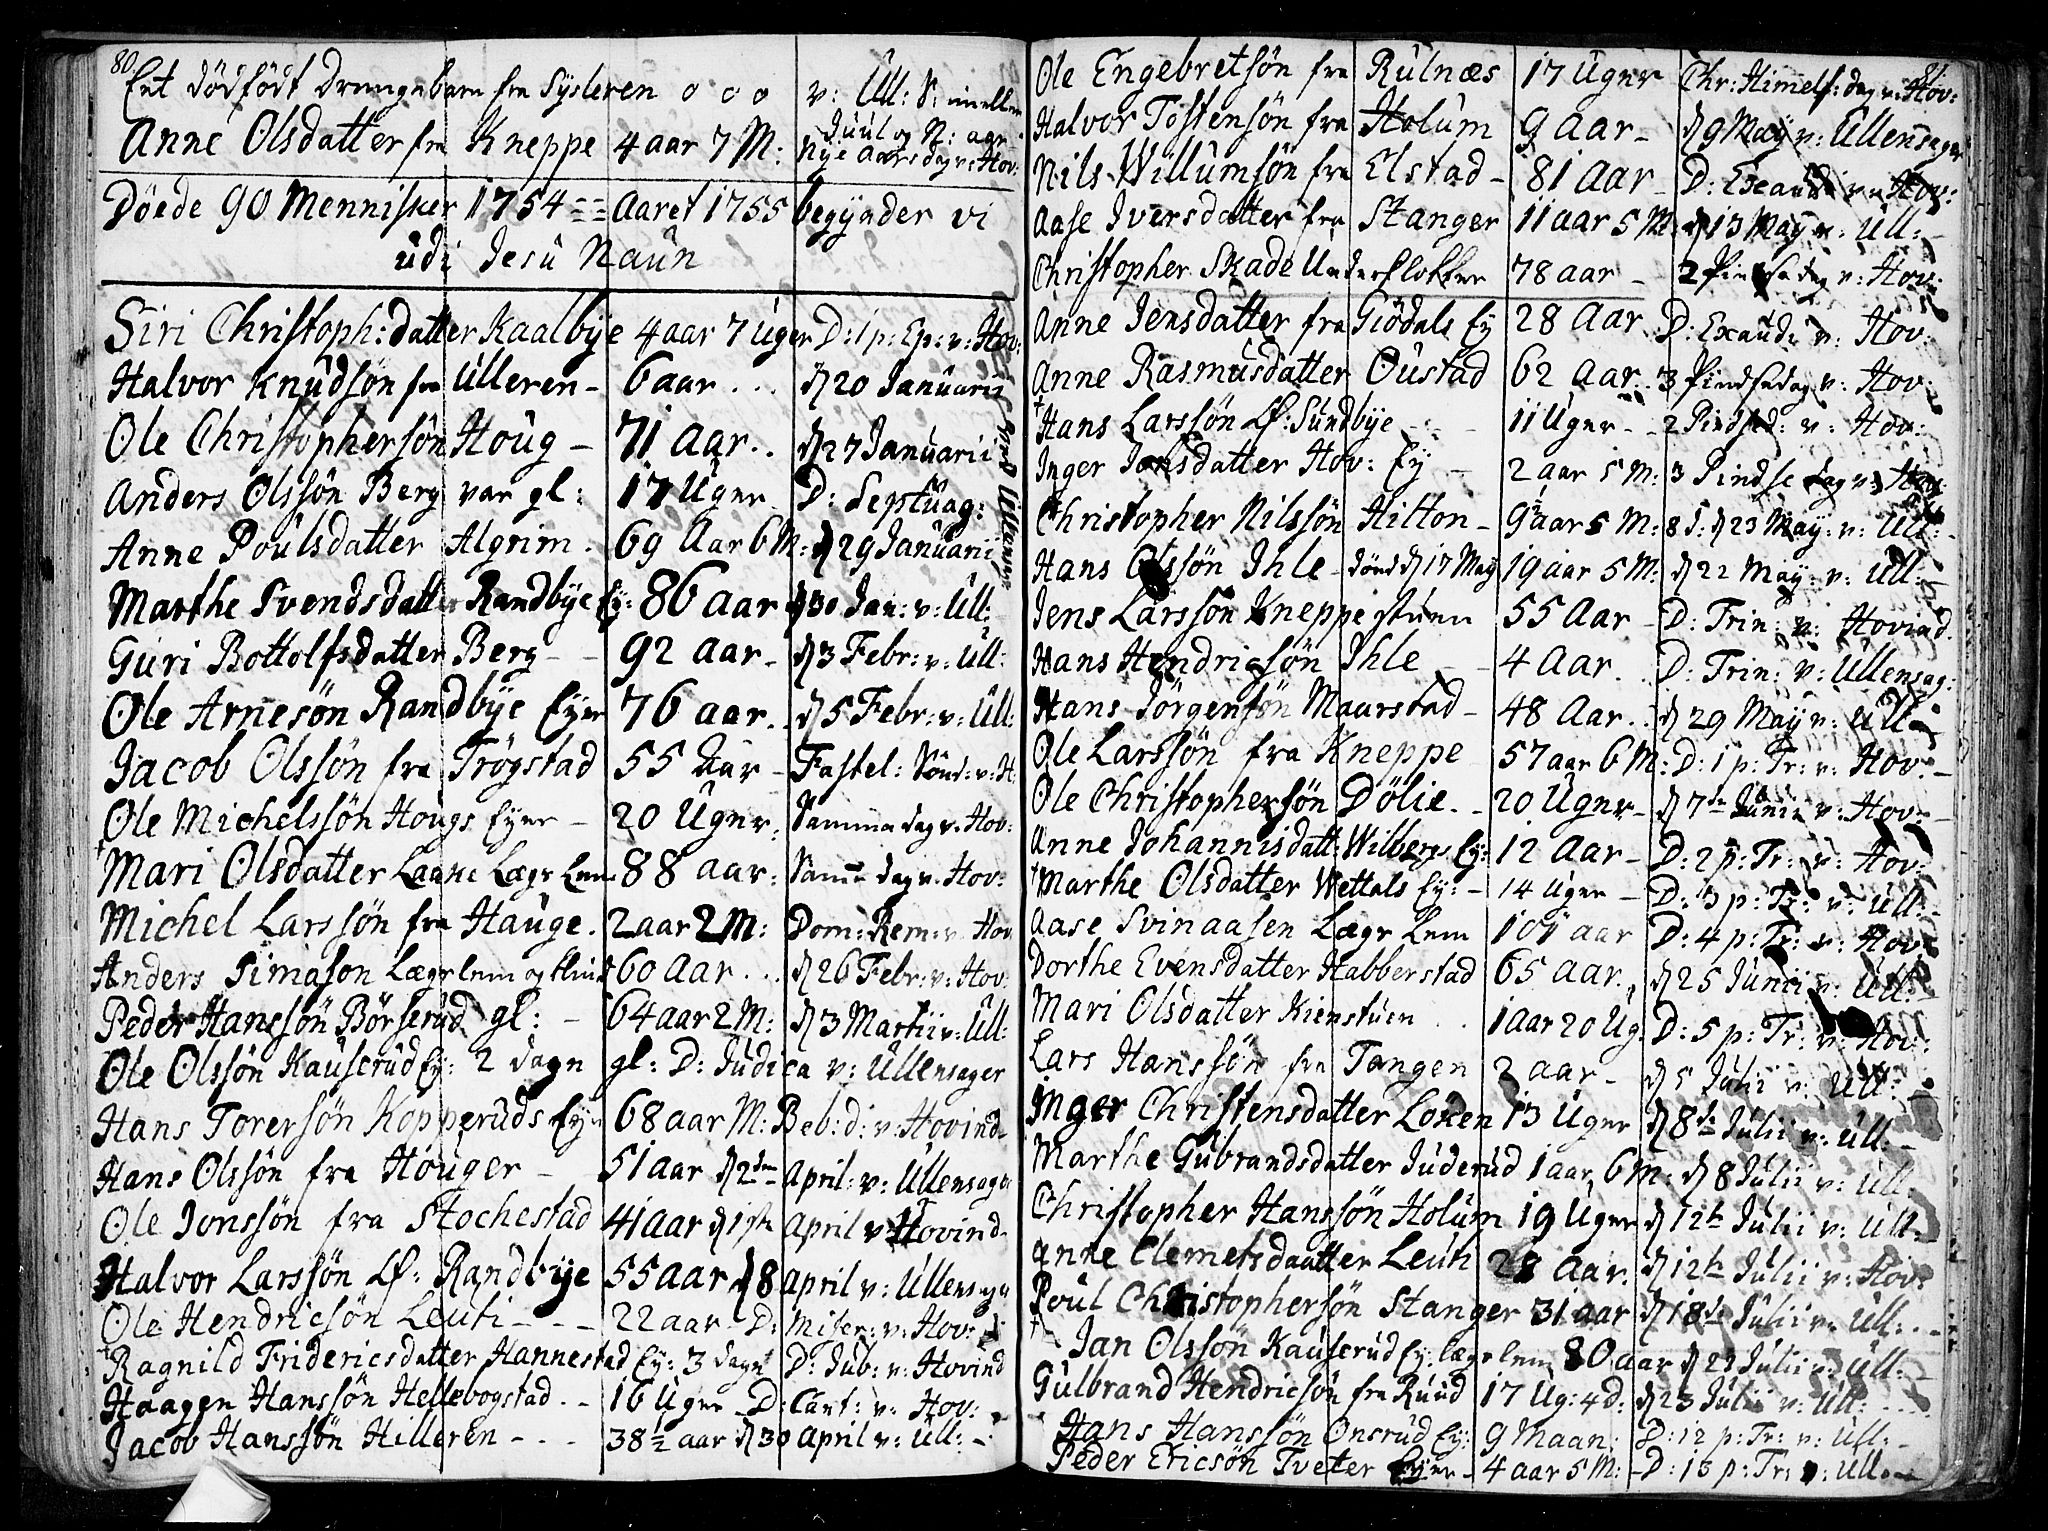 80
Eet dödfödt Drengebarn fra Sysleren o o o v: Ull: K: imellem
Juul og N: aar
Anne Olsdatter fra Kneppe 4 aar 7 M: Nye Aarsdag v: Hov:
Döede 90 Mennisker 1754 == Aaret 1755 begynder vi
udi Jesu Naun
Siri Christoph:datter Kaalbye 4 aar 7 Uger D: 1 p: Ep: v: Hov:
Halvor Knudsön fra Ulleren - 6 aar . . . d 20 Januarii
Ole Christophersön Houg - 71 Aar . . d 27 Januarii
Anders Olssön Berg var gl: 17 Uger D: Septuag:
Anne Poulsdatter Algrim . 69 Aar 6 M: d 29 Januarii
Marthe Svendsdatter Randbye Ey: 86 aar d 30 Jan: v: Ull:
Guri Bottolfsdatter Berg - - 92 aar - d 3 Febr: v: Ull:
Ole Arnesön Randbye Eyer 76 aar . d 5 Febr: v: Ull:
Jacob Olssön fra Trögstad 55 Aar - Fastel: Sönd: v: H:
Ole Michelssön Hougs Eyer - 20 Uger . Samme dag v. Hov:
Mari Olsdatter Laane Lægs Lem 88 aar: Samme dag v. Hov:
Michel Larssön fra Hauge . 2 aar 2 M: Dom: Rem: v: Hov
Anders Simason Lægslem og 60 Aar . . . d 26 Febr: v: Hov:
Peder Hanssön Börserud gl: - 64 aar 2 M: d 3 Martii v: Ull:
Ole Olssön Kauserud Ey: 2 dage gl: D: Judica v: Ullensager
Hans Torersön Kopperuds Eye 68 aar M: Beb: d: v: Hovind
Hans Olssön fra Houger - 51 aar d 2den April: v: Ullensager
Ole Jonssön fra Stochestad 41 aar d 1ste April v Hovind
Halvor Larssön Lf: Randbye 55 aar d 8 April v: Ullensager
Ole Hendricsön Leuti - - - 22 aar D: Miser: v: Hov:
Ragnild Fridericsdatter Hannestad Ey: 3 dage D: Jub: v: Hovind
Haagen Hanssön Hellebogstad . - 16 Uger D: Cant: v: Hov:
Jacob Hanssön Hilleren - . - 38 1/2 aar d 30 April v: Ull: -
81
Ole Engebretsön fra Rulnæs 17 Uger Chr: Himelf: dag v: Hov:
Halvor Töstensön fra Holum 9 Aar - d 9 May v: Ullensager
Nils Willumsön fra Elstad - 81 Aar - D: Exaudi v: Hov:
Aase Iversdatter fra Stanger 11 aar 5 M: d 13 May v: Ull:
Christopher Skade Underklokker 78 aar - 2 Pintsedag v: Hov:
Anne Jensdatter fra Giödals Ey 28 Aar D: Exaudi v: Hov:
Anne Rasmusdatter Oustad 62 Aar . 3 Pindsedag v: Hov:
Hans Larssön Lf: Sundbye - - 11 Uger - 2 Pindsed: v: Hov:
Inger Jonsdatter Hov: Ey - 2 aar 5 M: 3 Pindse dag v: Hov:
Christopher Nilssön Hilton - 9 aar 5 M: d 23 May: v: Ull:
Hans Olssön Ihle - död d 17 May 19 aar 5 M: d 22 May: v: Ull:
Jens Larssön Kneppestuen 55 Aar - D: Trin: v: Hovind.
Hans Hendricsön Ihle - - 4 Aar . . D: Trin: v: Ullensag:
Hans Jörgensön Maurstad - 48 Aar . . d 29 May v: Ull:
Ole Larssön fra Kneppe 57 aar 6 M: D: 1 p: Tr: v: Hov:
Ole Christophersön Dölie - . 20 Uger - d 7de Junii v: Hov:
Anne Johannisdatt: Wilbergs Ey: 12 Aar - D: 2 p: Tr: v: Hov:
Marthe Olsdatter Wettals Ey: - 14 Uger - D: 3 p: Tr: v: Ull:
Aase Svinaasen Lægs Lem 101 aar D: 4 p: Tr: v: Hov:
Dorthe Evensdatter Habberstad 65 Aar . . d 25 Junii v: Ull:
Mari Olsdatter Kienstuen . . 1 aar 20 Ug. D: 5 p: Tr: v: Hov:
Lars Hanssön fra Tangen 2 aar - d 5 Julii v: Ull:
Inger Christensdatter Loken 13 Uger d 8de Julii v: Ull:
Marthe Gubrandsdatter Juderud 1 aar 6 M: d 8 Julii v: Ull:
Christopher Hanssön Holum 19 Uger d 12te Julii v: Ull:
Anne Clemetsdaatter Leuti 28 Aar. d 12te Julii v: Hov:
Poul Christophersön Stanger 31 aar d 18de Julii v: Ull: . -
Jan Olsson Kauserud Ey. lægslem 80 aar d 22 Julii v: Ull: -
Gulbrand Hendricsön fra Ruud 17 Ug: 4 D: d 23 Julii v: Ull: . .
Hans Hanssön Onsrud Ey: 9 Maan: D: 12 p: Tr: v: Ull: -
Peder Ericsön Tveter Eyer - 4 aar 5 M: - D: 13 p: Tr: v: Ull: